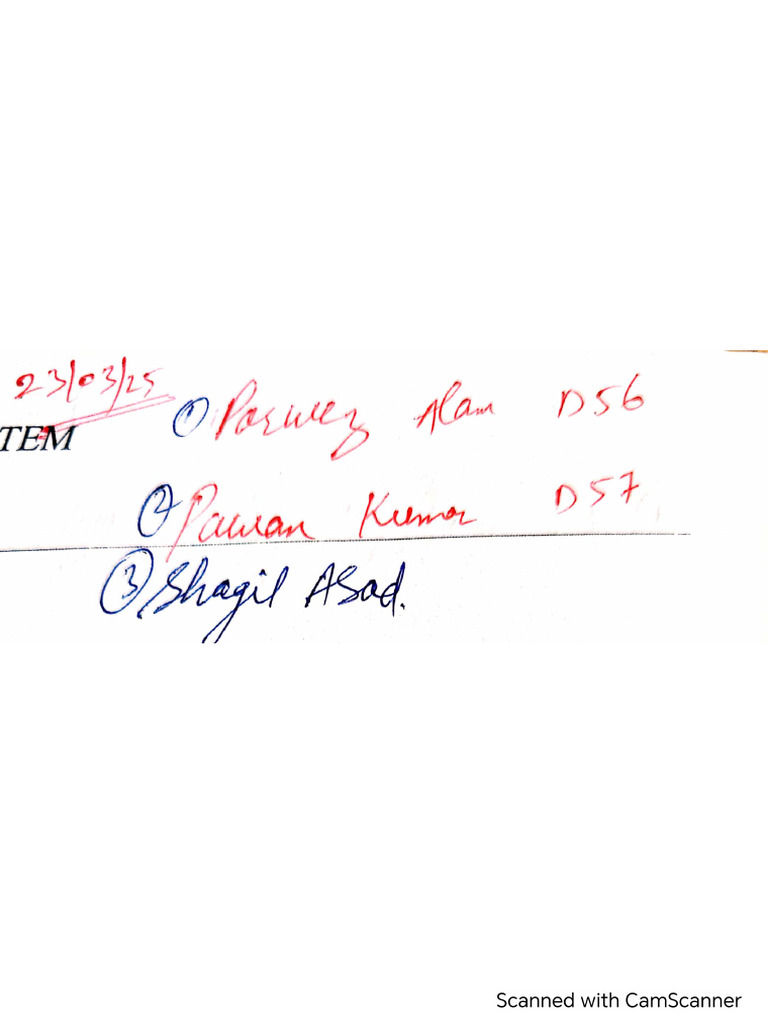 23/03/25
① Parwez Alam D56
TEM
② Pawan Kumar D57
③ Shagil Asad.
Scanned with CamScanner